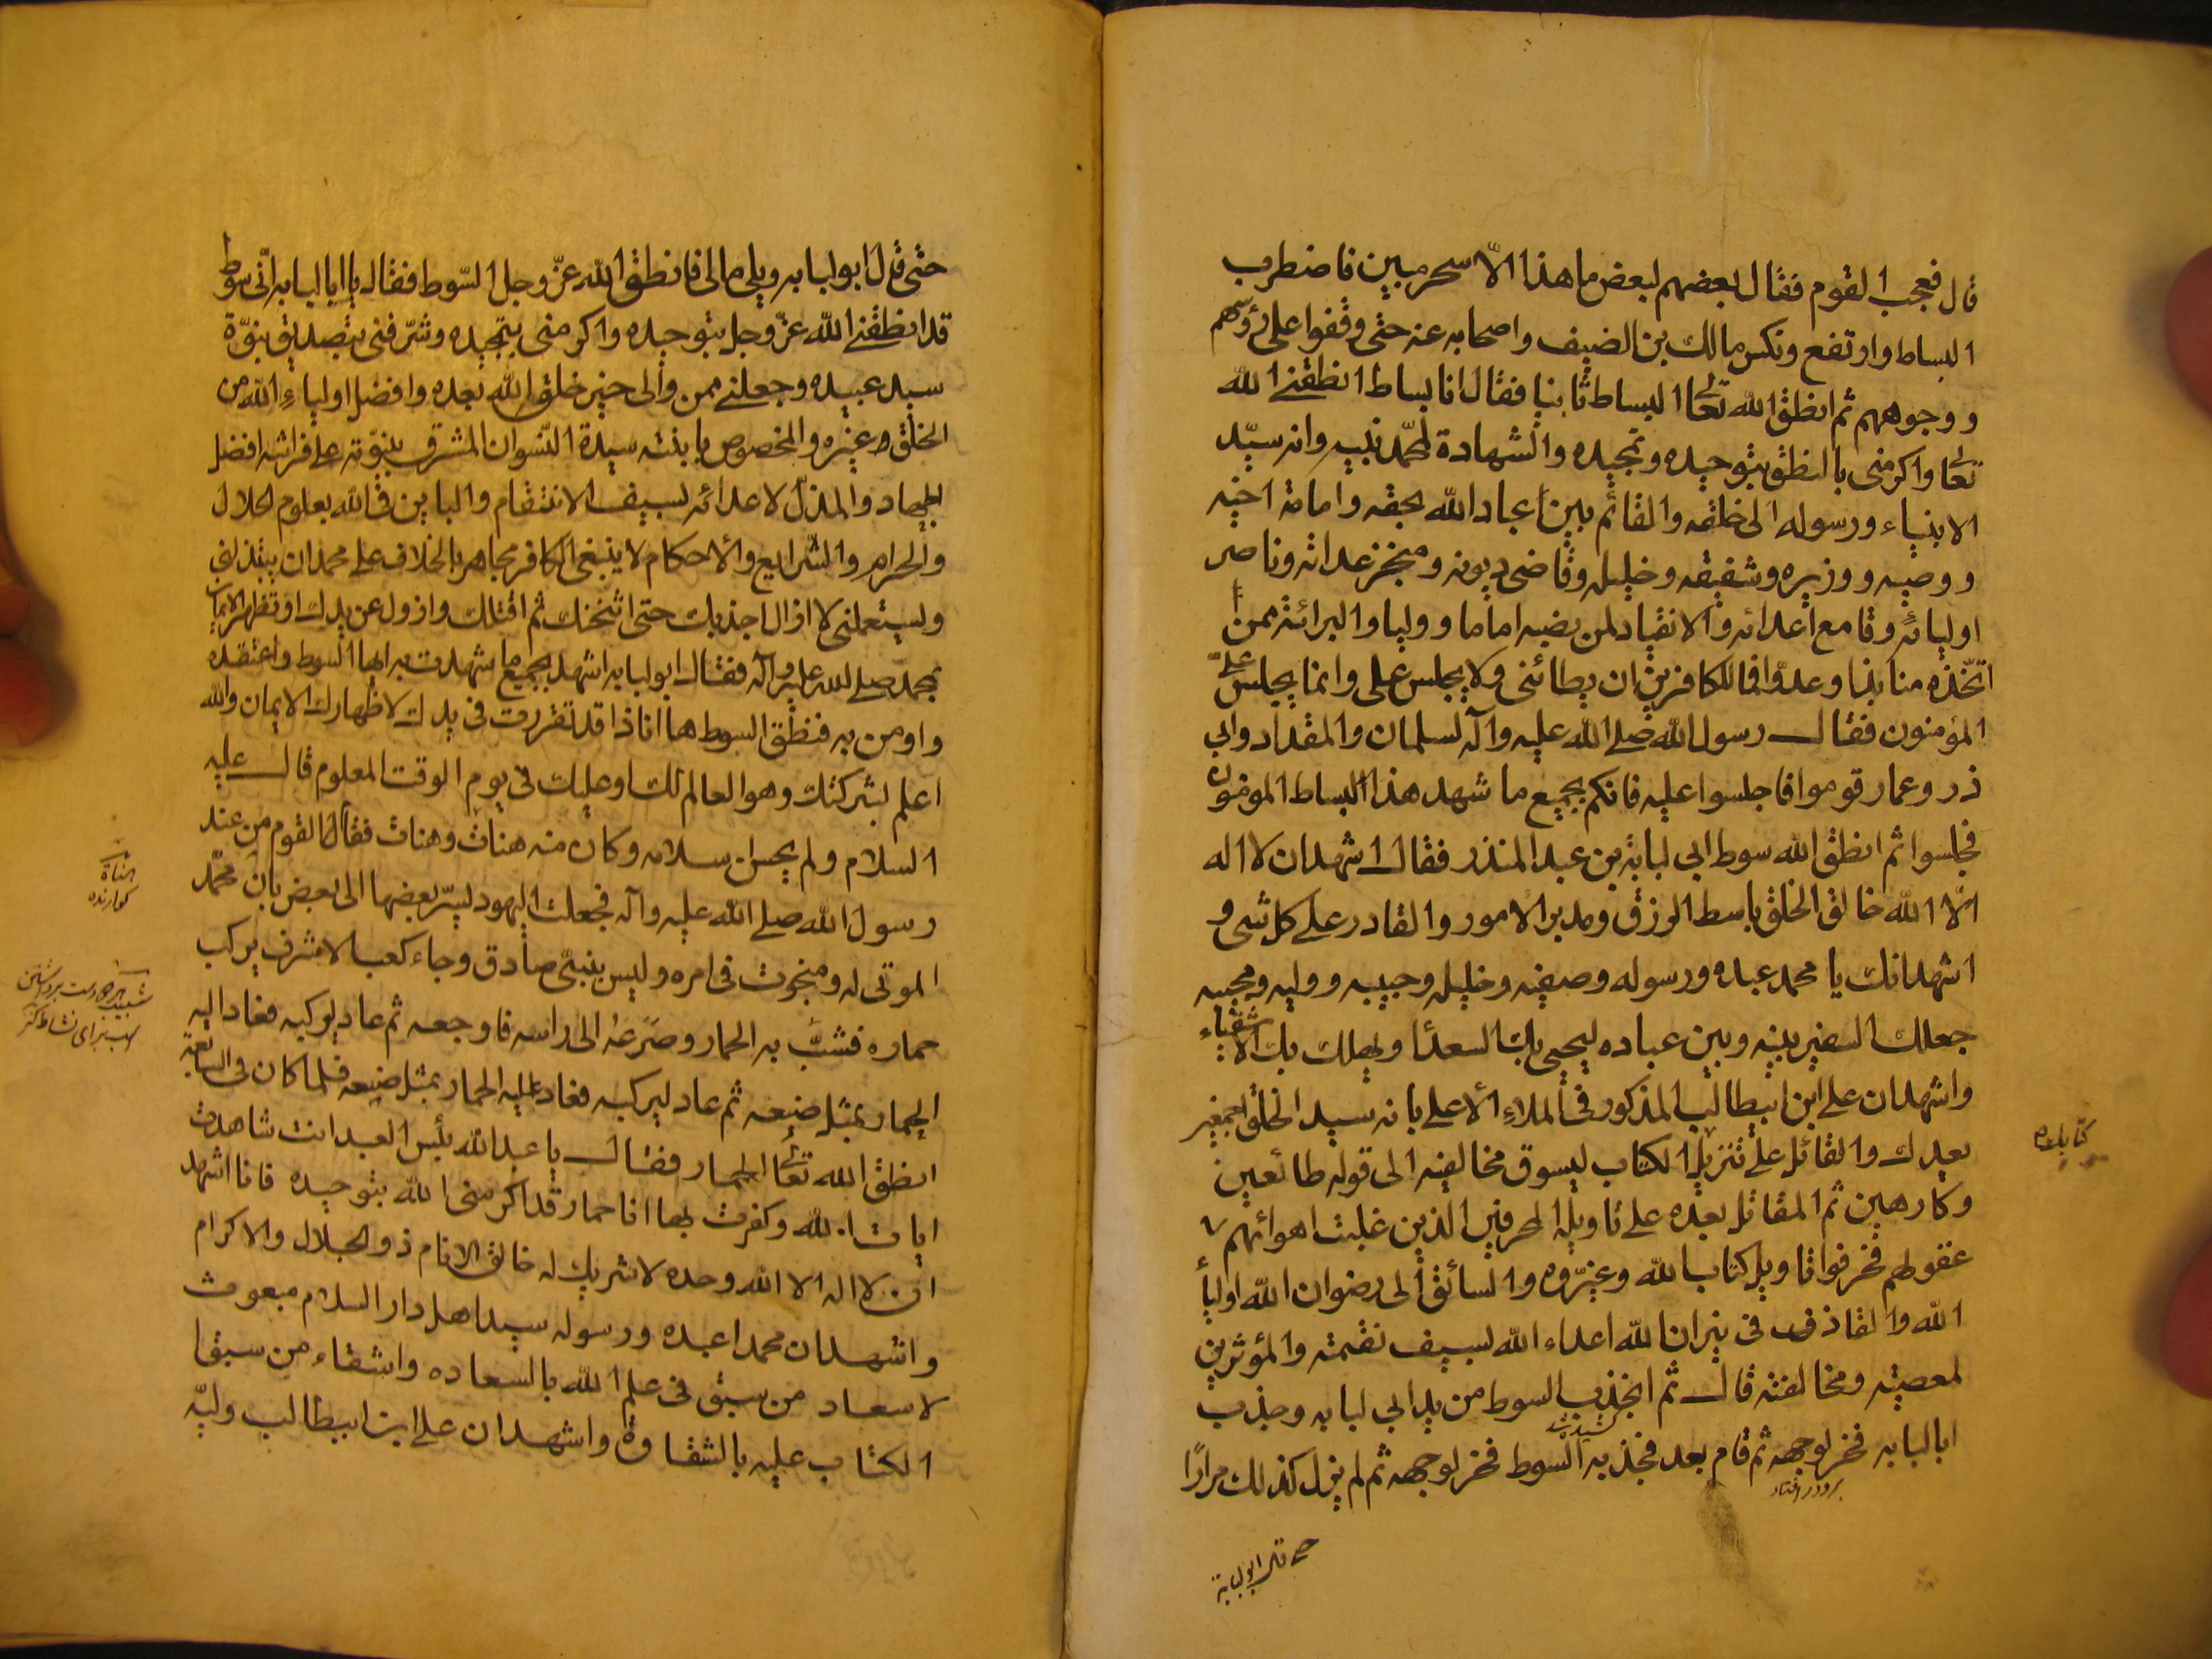 قال فعجب القوم فقال بعضهم لبعض ما هذا الّا سحر مبين فاضطرب
البساط وارتفع ونكس مالك بن الضيف واصحابه عنه حتى وقفوا على رؤسهم
ووجوههم ثم انطق الله تعالى البساط ثانيا فقال انا بساط انطقني الله
تعالى واكرمني بالنطق بتوحيده وتمجيده والشهادة لمحمّد نبيه وانه سيّد
الانبياء ورسوله الى خلقه والقائم بين عباد الله بحقه وامامة اخيه
ووصيه ووزيره وشقيقه وخليله وقاضي ديونه ومنجز عداته وناصر
اوليائه وقامع اعدائه والانقياد لمن نصبه اماما ووليا والبرائة ممن
اتخّذه منابذا وعدوّا فما للكافرين ان يطائني ولا يجلس علي وانما يجلس علىّ
المؤمنون فقال رسول الله صلى الله عليه وآله لسلمان والمقداد وابي
ذر وعمار قوموا فاجلسوا عليه فانكم بجميع ما شهد هذا البساط المومنون
فجلسوا ثم انطق الله سوط ابي لبابة بن عبد المنذر فقال اشهد ان لا اله
الّا الله خالق الخلق باسط الرزق ومدبر الامور والقادر على كل شي و
اشهد انك يا محمد عبده ورسوله وصفيه وخليله وحبيبه ووليه ومجيبه
جعلك السفير بينه وبين عباده ليحيى بك السعدا ويهلك بك الاشقياء
واشهد ان على ابن ابيطالب المذكور في الملاء الاعلى بانه سيد الخلق
بعدك والقاتل على تنزيل الكتاب ليسوق مخالفيه الى قوله طائعين
وكارهين ثم المقاتل بعده على تاويله المحرفين الذين غلبت اهوائهم
عقولهم فحرفوا تاويل كتاب الله وغيّروه والسائق الى رضوان الله اوليأ
الله والقاذف في نيران الله اعداء الله بسيف نقمته والمؤثرين
لمعصيته ومخالفته قال ثم انجذب السوط من يد ابي لبابه وجذب
ابا لبابه فخر لوجهه ثم قام بعد فجذبه السوط فخر لوجهه ثم لم يزل كذلك مرارًا
حتى قال ابو لبابة
حتى قال ابو لبابه ويلي مالي فانطق الله عزّ وجل السّوط فقال يا ابا لبابه انّي سوط
قد انطقني الله عزّ وجل بتوحيده واكرمني بتمجيده وشرّفني بتصديق نبوّة
سيد عبيده وجعلني ممن والى خير خلق الله بعده وافضل اولياء الله من
الخلق وغيره والمخصوص بابنته سيدة النّسوان المشرف ببيتوته على فراشه افضل
الجهاد والمذل لاعدائه بسيف الانتقام والباين في الله بعلوم الحلال
والحرام والشّرايع والاحكام لا ينبغي لكافر مجاهر بالخلاف على محمد ان يبتذلني
ويستعملني لا ازال اجذبك حتى اثخنك ثم اقتلك وازول عن يدك او تظهر الايمان
بمحمد صلى الله عليه وآله فقال ابو لبابه اشهد بجميع ما شهدت به ايها السوط واعتقده
واومن به فنطق السوط ها انا ذا قد تقررت في يدك لاظهارك الايمان والله
اعلم بسريرتك وهو العالم لك او عليك في يوم الوقت المعلوم قال عليه
السلام ولم يحسن اسلامه وكان منه هنات وهنات فقال القوم من عند
رسول الله صلى الله عليه وآله فجعلت اليهود ليسرّ بعضها الى بعض بان محمّد
الموتى له ومبخوت في امره وليس بنبيّ صادق وجاء كعب الاشرف يركب
حماره فشبّ به الحمار وصرعه الى راسه فاوجعه ثم عاد ليركبه فعاد اليه
الحمار بمثل صنيعه ثم عاد ليركبه فعاد عليه الحمار بمثل صنيعه فلما كان في السابعة
انطق الله تعالى الحمار فقال يا عبد الله بئس العبد انت شاهدت
ايات الله وكفرت بها انا حمار قد اكرمني الله بتوحيده فانا اشهد
ان لا اله الا الله وحده لا شريك له خالق الانام ذو الجلال والاكرام
واشهد ان محمدا عبده ورسوله سيد اهل دار السلام مبعوث
لاسعاد من سبق في علم الله بالسعاده واشقاء من سبق
الكتاب عليه بالشقاوة واشهد ان على ابن ابيطالب وليّه